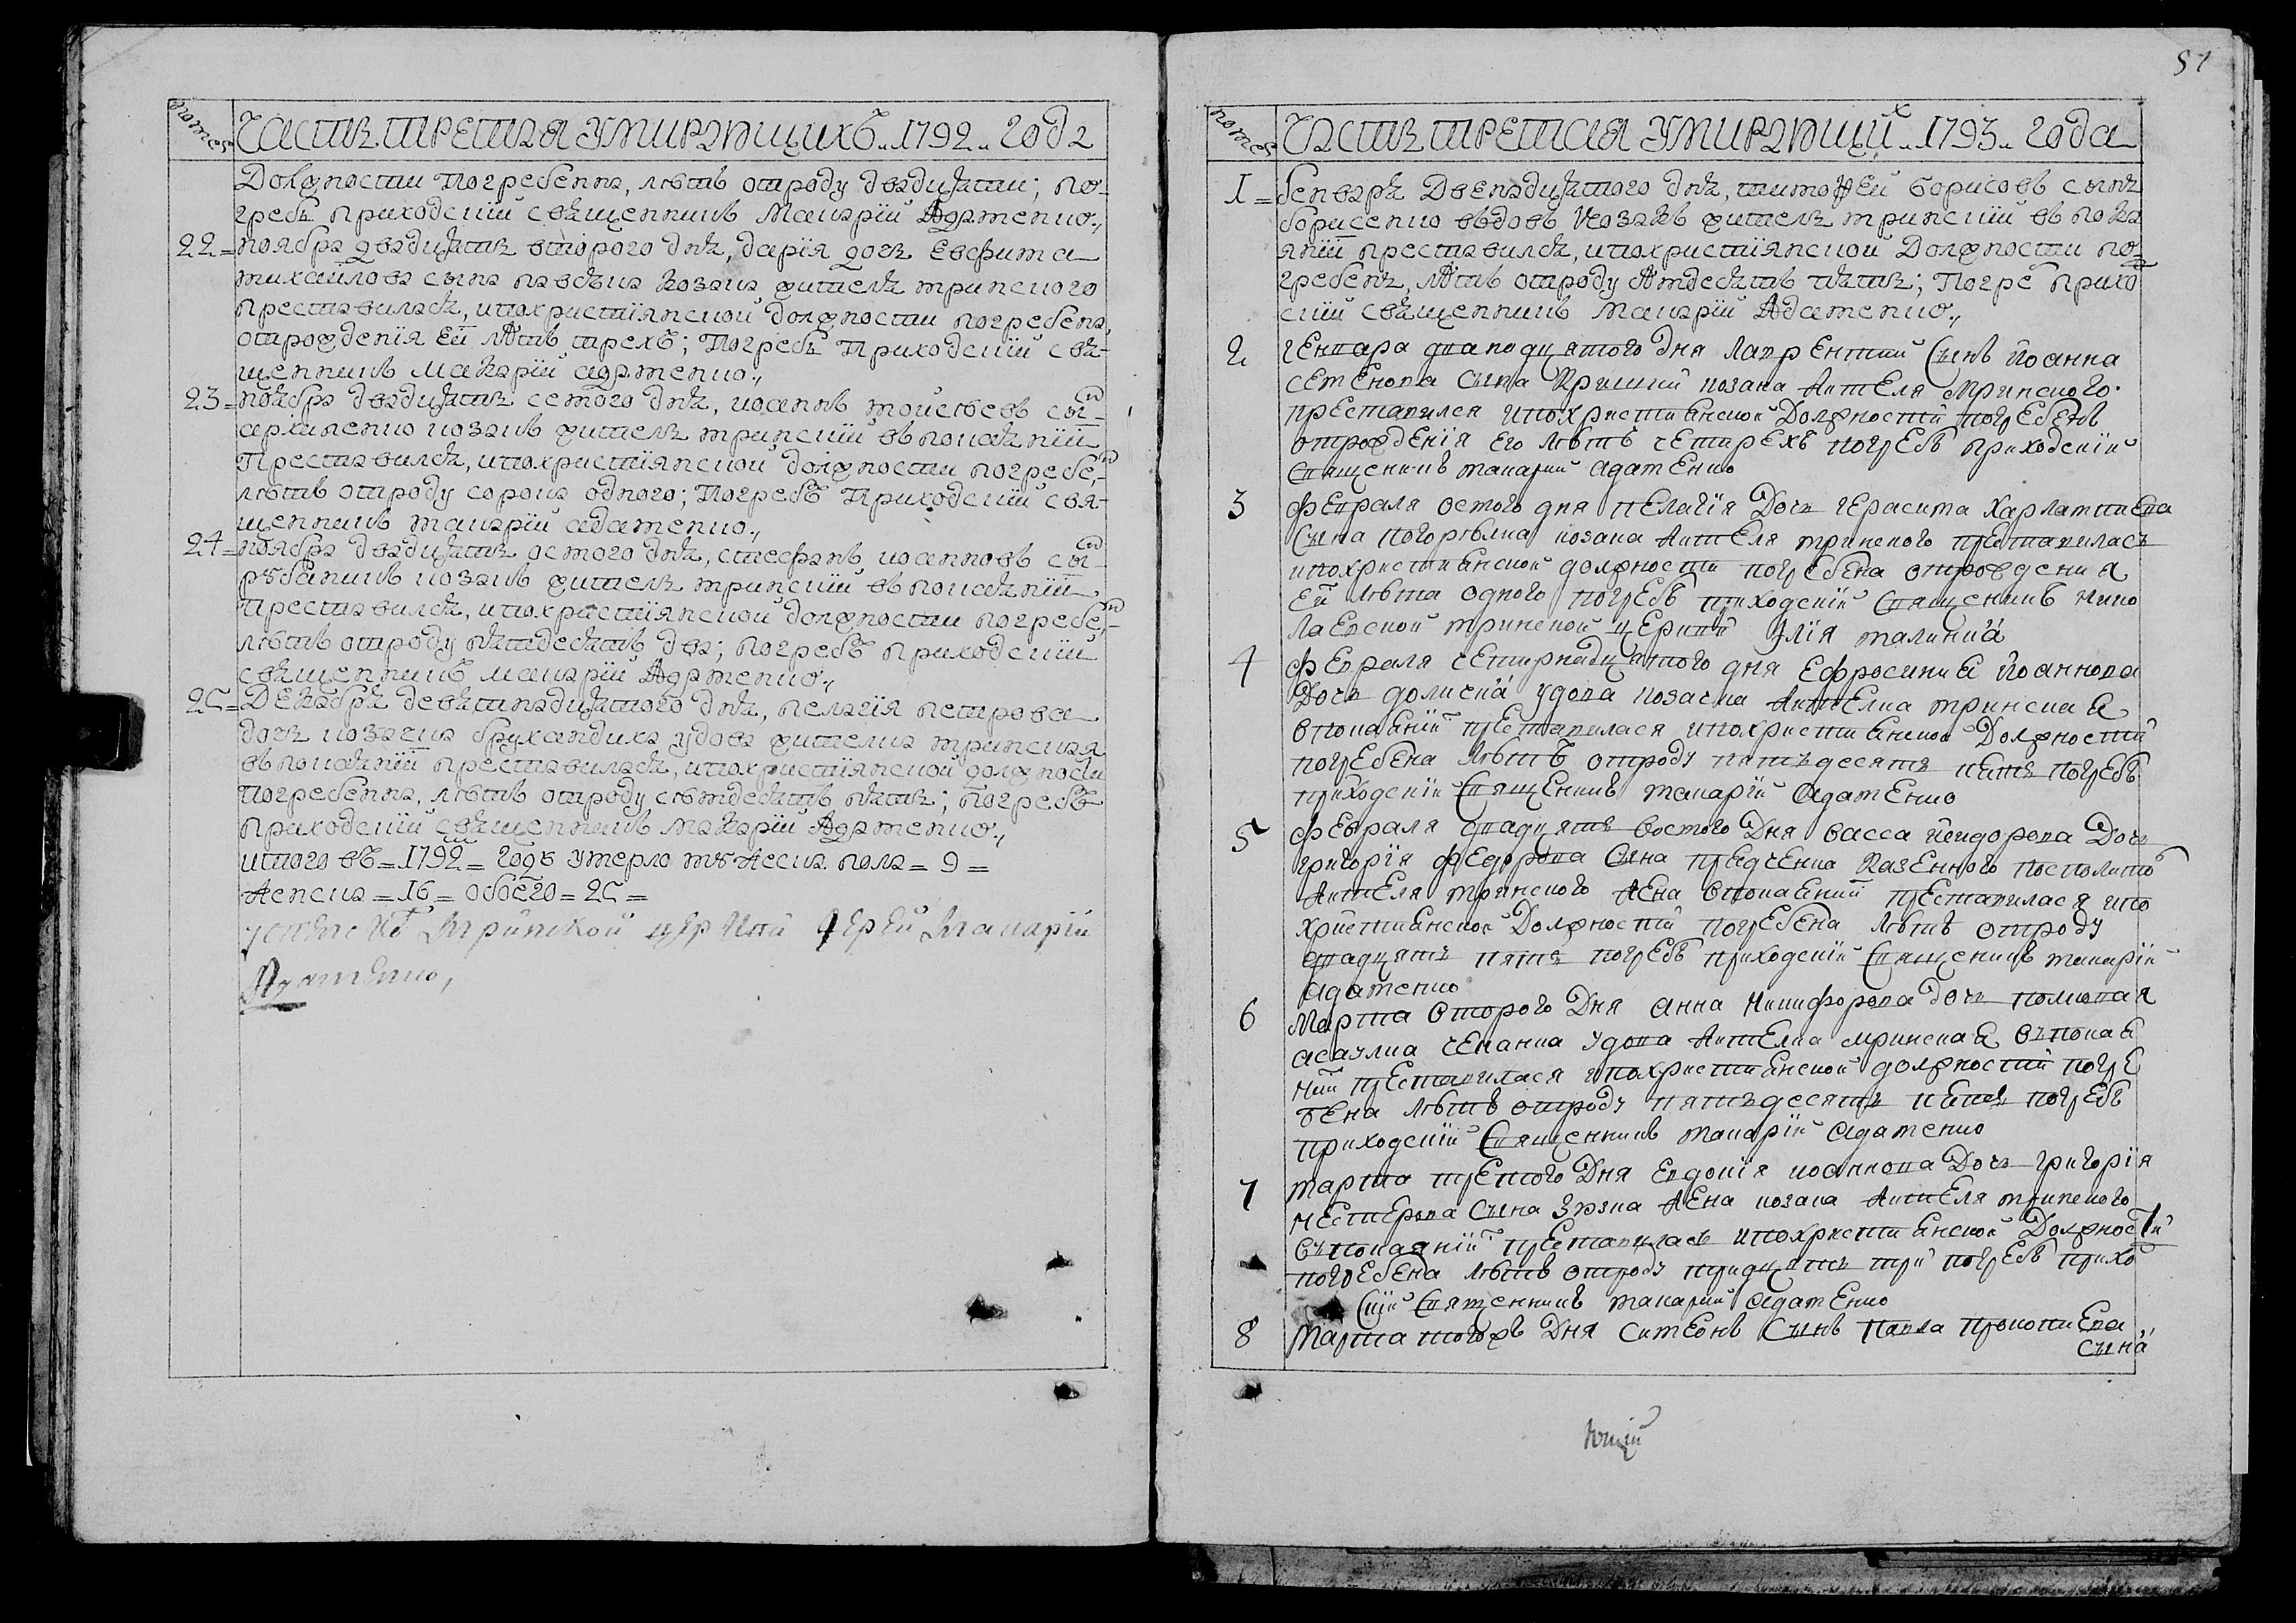 номеръ
Часть третая умираюцихъ 1792 года
Должности Погребенна, лѣтъ отроду двадцяти; по-
гребъ приходскій свяценникъ Макарій Адаменко.,
22= ноября двадцять второго дня, дарія дочь Евфима
михайлова сына козака жителя мринского
Преставилася, ипохристіянской должности погребена,
отрождения ей лѣтъ трехъ; Погребъ Приходскій свя-
щенникъ Макарій адаменко.,
23= ноября двадцять семого дня, иоаннъ моисеевъ сын
архипенко козакъ житель мринскій въ покаяніи
Преставился, ипохристіянской должности погребен,
лѣтъ отроду сорокъ одного; Погребъ Приходскій свя-
щенникъ макарій адаменко.,
24= ноября двадцять осмого дня, стефанъ иоанновъ сын
рубанникъ козакъ житель мринскій въ покаяніи
Преставился, ипохристіянской должности погребен,
лѣтъ отроду пятдесятъ два; погребъ приходскій
свяценникъ макарій Адаменко.,
25= Декабря девятнадцятого дня, пелагія петрова
дочь козачка удова жителка мринская
въ покаяніи преставилася, ипохристіянской должности
Погребенна, лѣтъ отроду сѣмдесятъ пять; Погребъ
приходскій свяценникъ макарій Адаменко.,
итого въ=1792=годѣ умерло мужеска пола=9=
женска=16=обоего=25=
Мринской церкви Іерей Макарій
Адаменко,
51
номеръ
Часть третая умираюцих 1793 года
1= генваря Двенадцятого дня, тимофей борисовъ сынъ
борисенко вдовъ козакъ житель мринскій въ пока
яніи преставился, ипохристіянской Должности по-
гребенъ, лѣтъ отроду пятдесятъ пять; Погре прихо
скій свяценникъ макарій Адаменко.,
2 генвара двападцятого дня лаврентий Сынъ иоанна
семенова сына козака жителя мринского
преставился ипохристиянской Должности погребенъ
отрождения его лѣтъ четирехъ погребъ приходскій
Свяценникъ макарий адаменко
3 февраля осмого дня пелагія Дочь герасима Харлампиева
Сына погорѣлка козака жителя мринского преставилась
ипохристиянской должности погребена отрождения
ей лѣта одного погребъ приходскій Свяценникъ нико
лаевской мринской церкви илія малинка
4 февраля четирнадцятого дня Ефросиния иоаннова
Дочь удова козачка жителка мринская
впокаянии преставилася ипохристиянской Должности
погребена лѣтъ отроду пятьдесятъ пять погребъ
приходскій Свяценникъ макарій адаменко
5 февраля двадцять восмого Дня васса Дочь
григорія федорова Сына казенного посполито
жителя мринского жена впокаянии преставилася ипо
христианской Должности погребена лѣтъ отроду
двадцять пять погребъ приходскій Свяценникъ макарій
адаменко
6 марта второго Дня анна никифорова дочь полковая
асаулка удова жителка мринская въпокая
нии преставилася ипохристиянской должности погре
бена лѣтъ отроду пятьдесятъ пять погребъ
приходскій Свяценникъ макарій адаменко
7 марта третого Дня Евдокія иоаннова Дочь григорія
нестерова Сына жена козака жителя мринского
въпокаянии преставилась ипохристиянской Должности
погребена лѣтъ отроду тридцять три погребъ прихо
скій Свяценникъ макарий адаменко
8 марта тогожъ Дня симеонъ Сынъ павла прокопиева
сына